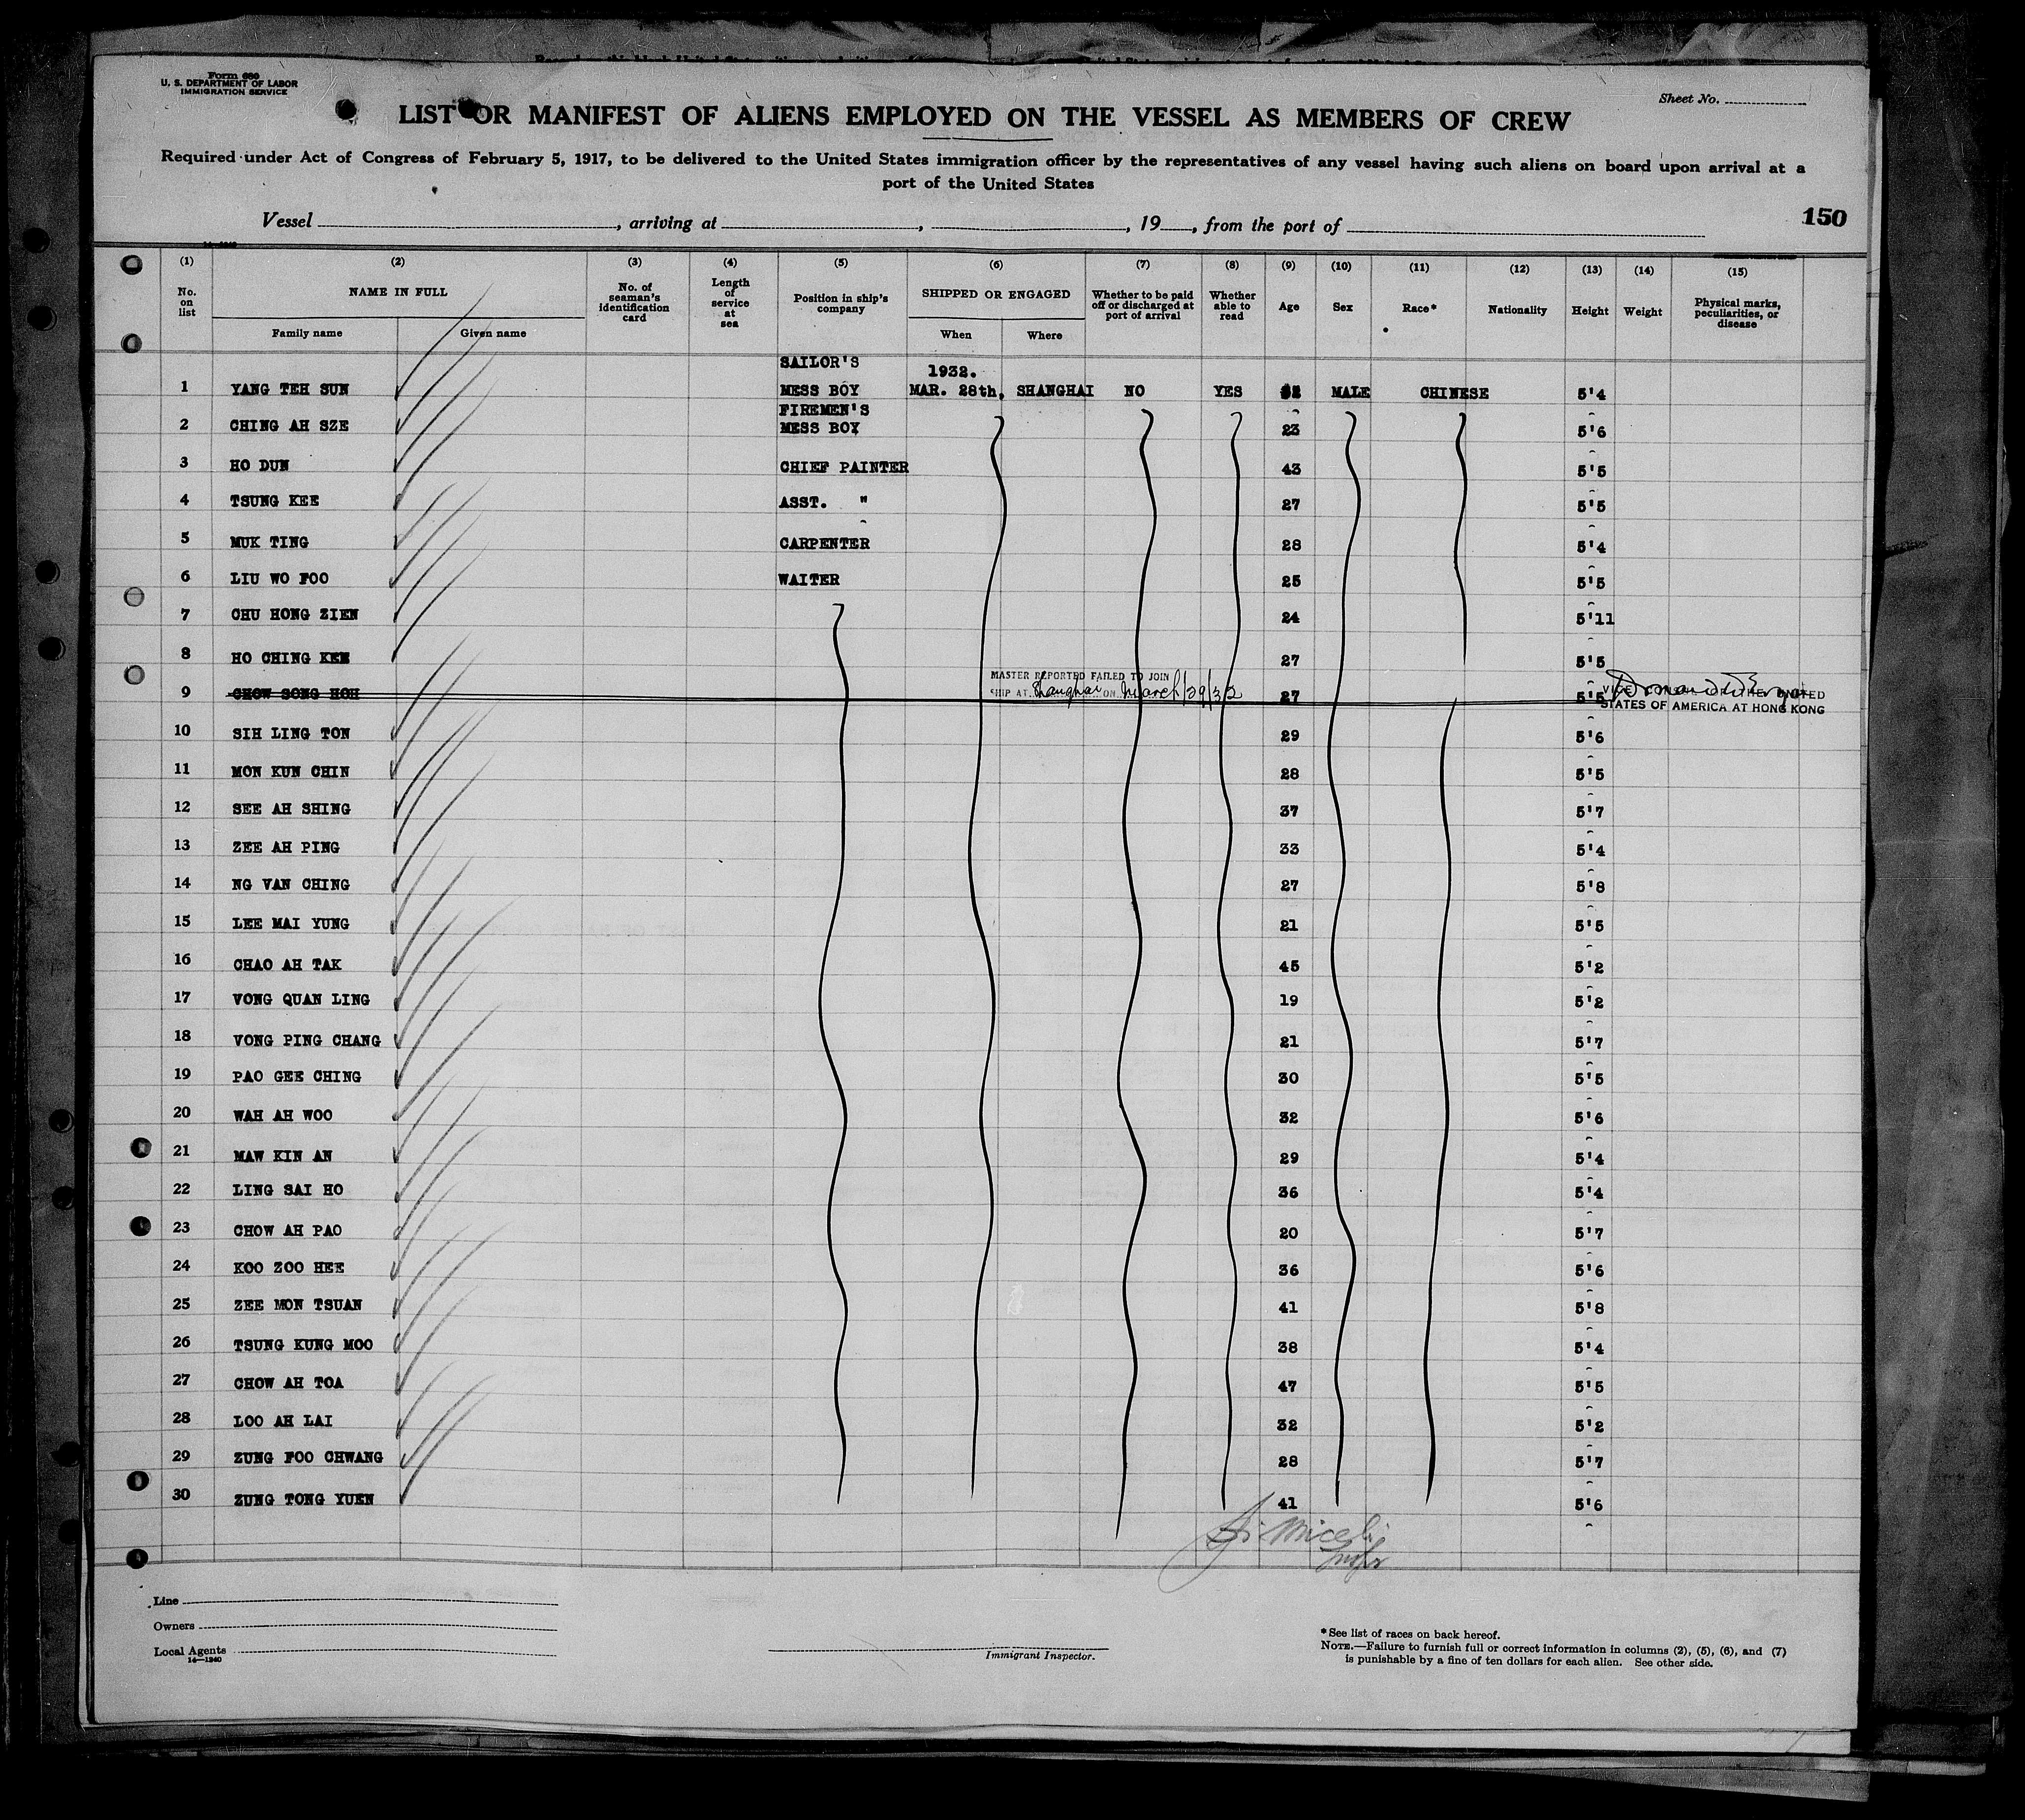 Form 680
U. S. DEPARTMENT OF LABOR
IMMIGRATION SERVICE
Sheet No.
LIST OR MANIFEST OF ALIENS EMPLOYED ON THE VESSEL AS MEMBERS OF CREW
Required under Act of Congress of February 5, 1917, to be delivered to the United States immigration officer by the representatives of any vessel having such aliens on board upon arrival at a
port of the United States
Vessel , arriving at , , 19 , from the port of
150
(1) (2) (3) (4) (5) (6) (7) (8) (9) (10) (11) (12) (13) (14) (15)
No. on list NAME IN FULL Family name Given name No. of seaman's identification card Length of service at sea Position in ship's company SHIPPED OR ENGAGED When Where Whether to be paid off or discharged at port of arrival Whether able to read Age Sex Race* Nationality Height Weight Physical marks, peculiarities, or disease
SAILOR'S
1932.
1 YANG TEH SUN MESS BOY MAR. 28th, SHANGHAI NO YES MALE CHINESE 5'4
FIREMEN'S
2 CHING AH SZE MESS BOY 23 5'6
3 HO DUN CHIEF PAINTER 43 5'5
4 TSUNG KEE ASST. " 27 5'5
5 MUK TING CARPENTER 28 5'4
6 LIU WO FOO WAITER 25 5'5
7 CHU HONG ZIEN 24 5'11
8 HO CHING KEE 27 5'5
MASTER REPORTED FAILED TO JOIN
9 CHOW SONG HOH SHIP AT Shanghai ON March/29/32 27 5'5 VICE CONSUL OF THE UNITED
STATES OF AMERICA AT HONG KONG
10 SIH LING TON 29 5'6
11 MON KUN CHIN 28 5'5
12 SEE AH SHING 37 5'7
13 ZEE AH PING 33 5'4
14 NG VAN CHING 27 5'8
15 LEE MAI YUNG 21 5'5
16 CHAO AH TAK 45 5'2
17 VONG QUAN LING 19 5'2
18 VONG PING CHANG 21 5'7
19 PAO GEE CHING 30 5'5
20 WAH AH WOO 32 5'6
21 MAW KIN AN 29 5'4
22 LING SAI HO 36 5'4
23 CHOW AH PAO 20 5'7
24 KOO ZOO HEE 36 5'6
25 ZEE MON TSUAN 41 5'8
26 TSUNG KUNG MOO 38 5'4
27 CHOW AH TOA 47 5'5
28 LOO AH LAI 32 5'2
29 ZUNG FOO CHWANG 28 5'7
30 ZUNG TONG YUEN 41 5'6
Line
Owners
Local Agents
14—1240
Immigrant Inspector.
*See list of races on back hereof.
NOTE.—Failure to furnish full or correct information in columns (2), (5), (6), and (7)
is punishable by a fine of ten dollars for each alien. See other side.